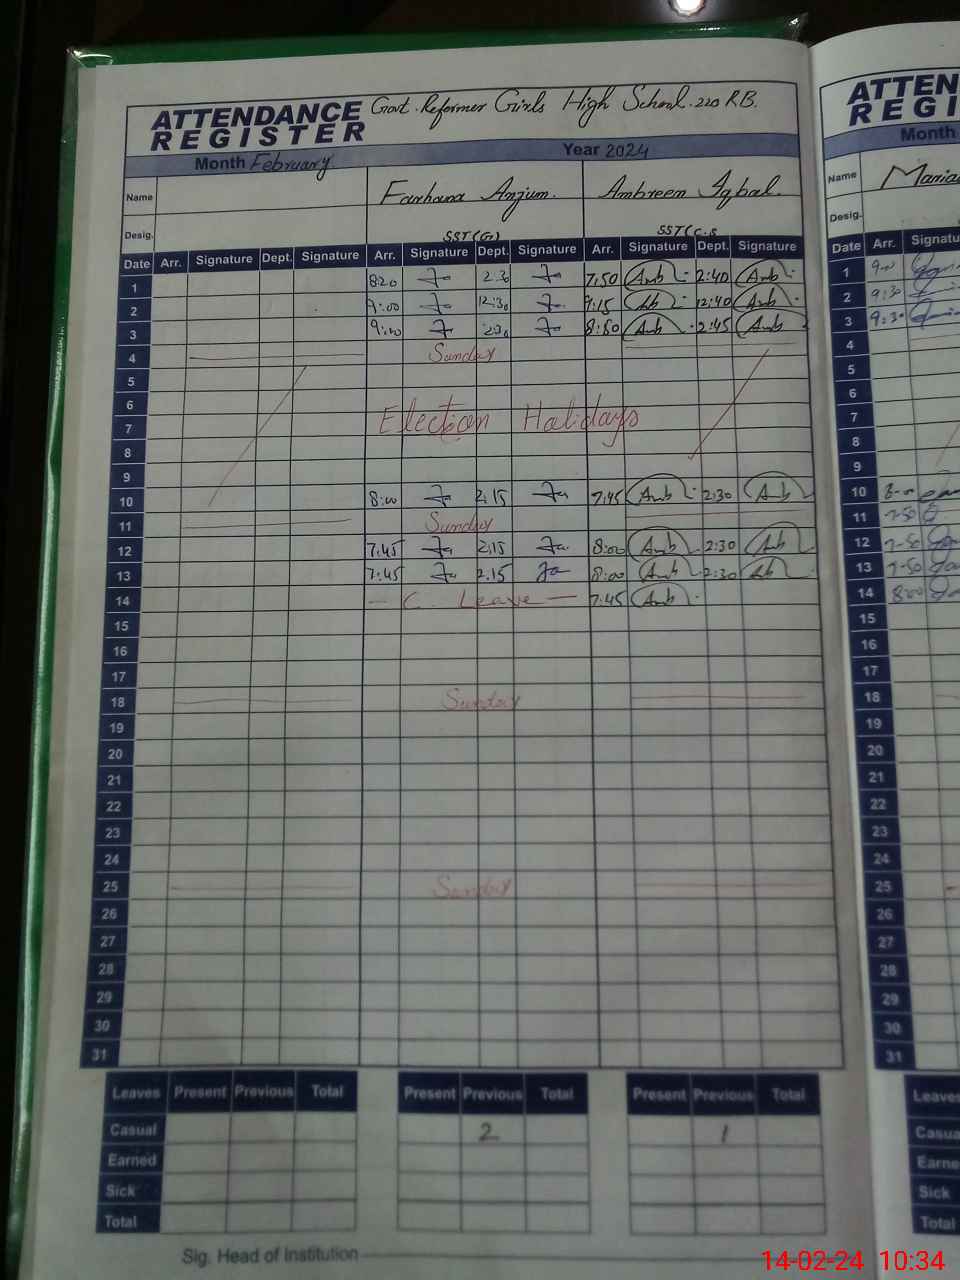 ATTENDANCE REGISTER Govt. Reformer Girls High School. 220 RB.
Month February Year 2024
Name Farhana Anjum. Ambreem Iqbal.
Desig. SST(G) SST(C.S
Date Arr. Signature Dept. Signature Arr. Signature Dept. Signature Arr. Signature Dept. Signature
1 8:20 2.30 7:50 Amb 2:40 Amb
2 9:00 12:30 9:15 12:40 Amb
3 9:00 2:30 8:50 Amb 2:45 Amb
4 Sunday
5
6
7 Election Holidays
8
9
10 8:00 2.15 7:45 Amb 2:30 Amb
11 Sunday
12 7:45 2.15 8:00 Amb 2:30 Amb
13 7:45 2.15 8:00 Amb 2:30
14 - C. Leave - 7:45 Amb
15
16
17
18 Sunday
19
20
21
22
23
24
25 Sunday
26
27
28
29
30
31
Leaves Present Previous Total Present Previous Total Present Previous Total
Casual 2 1
Earned
Sick
Total
Sig. Head of Institution
ATTEN
REGI
Month
Name Maria
Desig.
Date Arr. Signatu
1 9:00
2 9:30
3 9:30
4
5
6
7
8
9
10 8-00
11 7-50
12 7-50
13 7-50
14 8:00
15
16
17
18
19
20
21
22
23
24
25
26
27
28
29
30
31
Leaves
Casua
Earne
Sick
Total
14-02-24 10:34